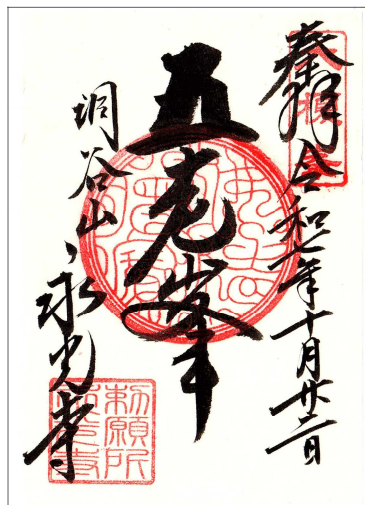 奉拝 令和七年十月廿二日
五老峯
洞谷山 永光寺
勅願所